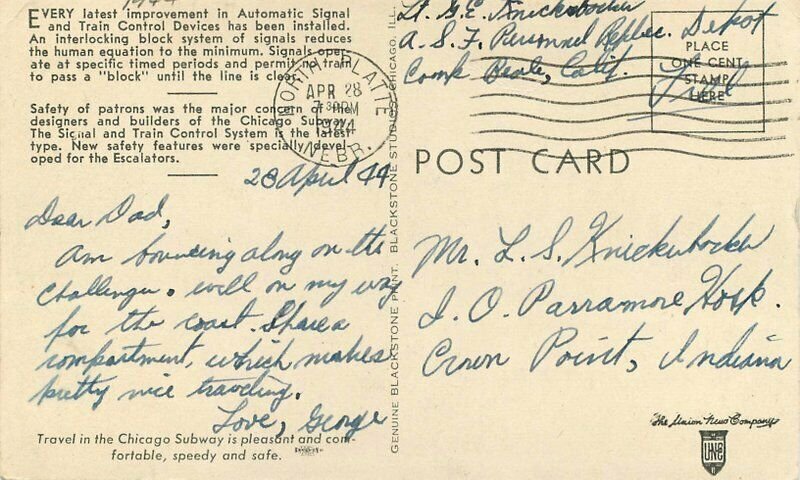 1944
EVERY latest improvement in Automatic Signal
and Train Control Devices has been installed.
An interlocking block system of signals reduces
the human equation to the minimum. Signals oper-
ate at specific timed periods and permit no train
to pass a "block" until the line is clear.
Safety of patrons was the major concern of the
designers and builders of the Chicago Subway.
The Signal and Train Control System is the latest
type. New safety features were specially devel-
oped for the Escalators.
NORTH PLATTE
APR 28
7 30 PM
1944
NEBR.
28 April 44
Dear Dad,
Am bouncing along on the
Challenger. well on my way
for the coast. Share a
compartment, which makes
pretty nice traveling.
Love, George
Travel in the Chicago Subway is pleasant and com-
fortable, speedy and safe.
GENUINE BLACKSTONE PRINT. BLACKSTONE STUDIOS, CHICAGO, ILL.
Lt. G.E. Knickerbocker
A.S.F. Personnel Replac. Depot
Camp Beale, Calif.
PLACE
ONE CENT
STAMP
HERE
Free
POST CARD
Mr. L. S. Knickerbocker
J. O. Parramore Hosp.
Crown Point, Indiana
The Union News Company
UNC